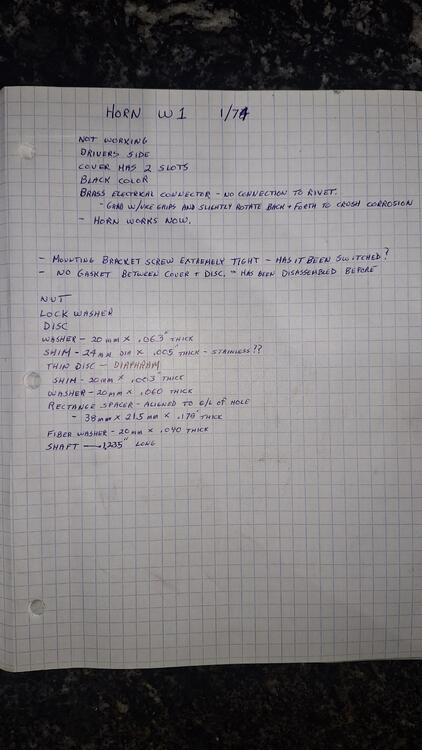 HORN W1 1/74
NOT WORKING
DRIVERS SIDE
COVER HAS 2 SLOTS
BLACK COLOR
BRASS ELECTRICAL CONNECTOR - NO CONNECTION TO RIVET.
- GRAB W/VICE GRIPS AND SLIGHTLY ROTATE BACK + FORTH TO CRUSH CORROSION
- HORN WORKS NOW.
- MOUNTING BRACKET SCREW EXTREMELY TIGHT - HAS IT BEEN SWITCHED?
- NO GASKET BETWEEN COVER + DISC. - HAS BEEN DISASSEMBLED BEFORE
NUT
LOCK WASHER
DISC
WASHER - 20mm X .063" THICK
SHIM - 24mm DIA X .005" THICK - STAINLESS??
THIN DISC - DIAPHRAM
SHIM - 20mm X .003" THICK
WASHER - 20mm X .060 THICK
RECTANGE SPACER - ALIGNED TO C/L OF HOLE
- 38mm X 21.5mm X .178" THICK
FIBER WASHER - 20mm X .040 THICK
SHAFT - 1.235" LONG